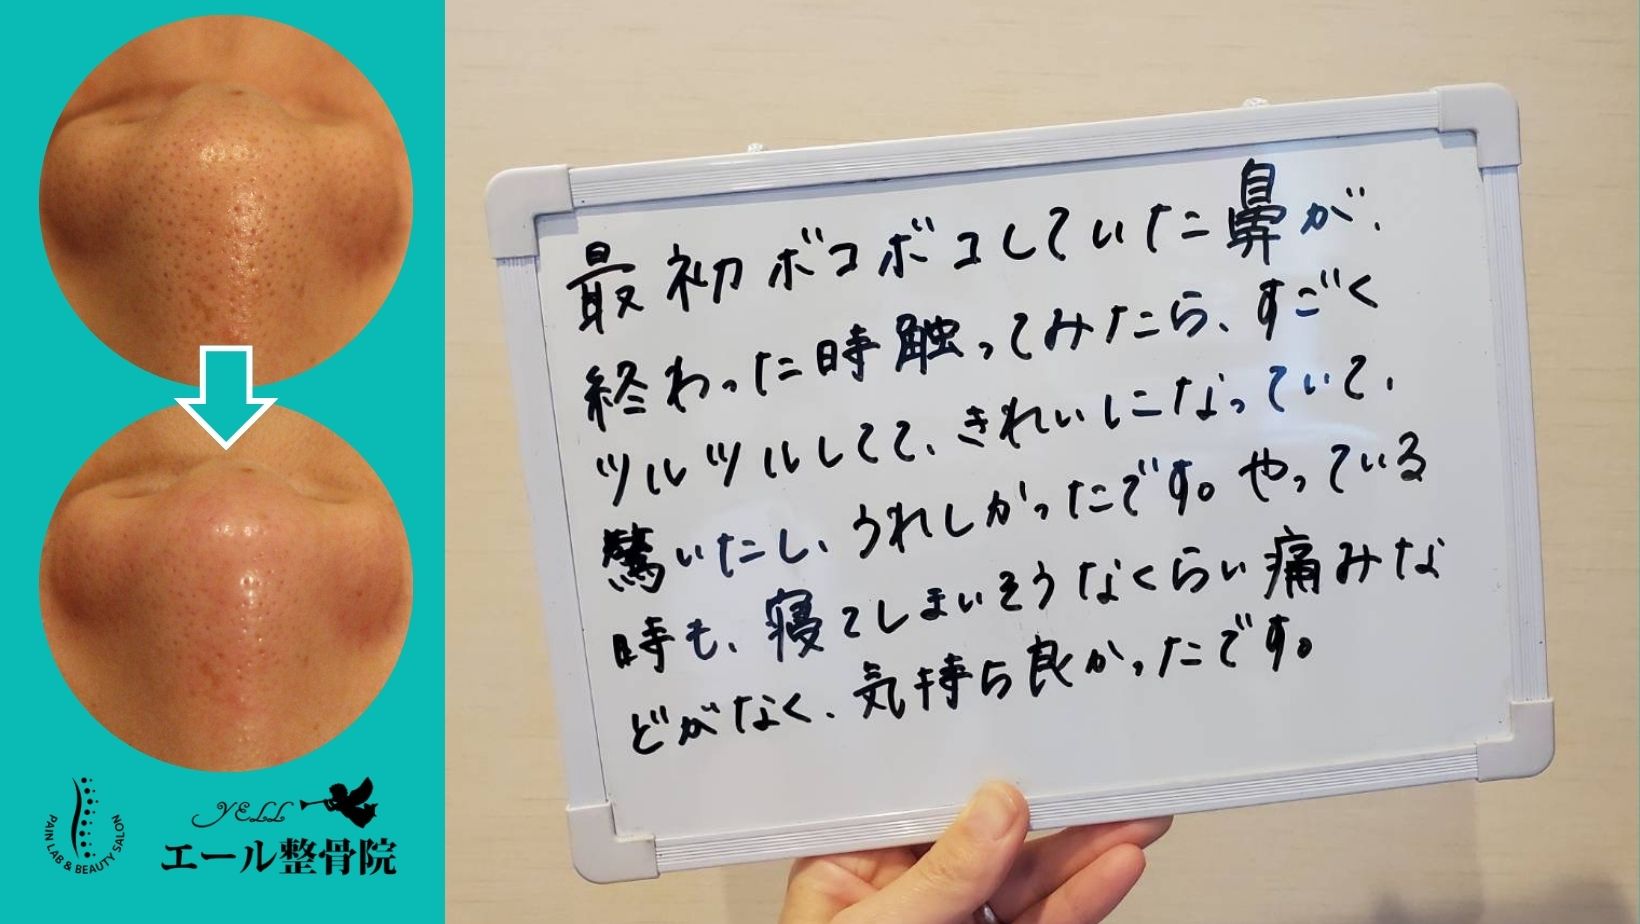 最初ボコボコしていた鼻が、
終わった時触ってみたら、すごく
ツルツルしてて、きれいになっていて、
驚いたし、うれしかったです。やっている
時も、寝てしまいそうなくらい痛みな
どがなく、気持ち良かったです。
PAIN LAB & BEAUTY SALON
YELL
エール整骨院